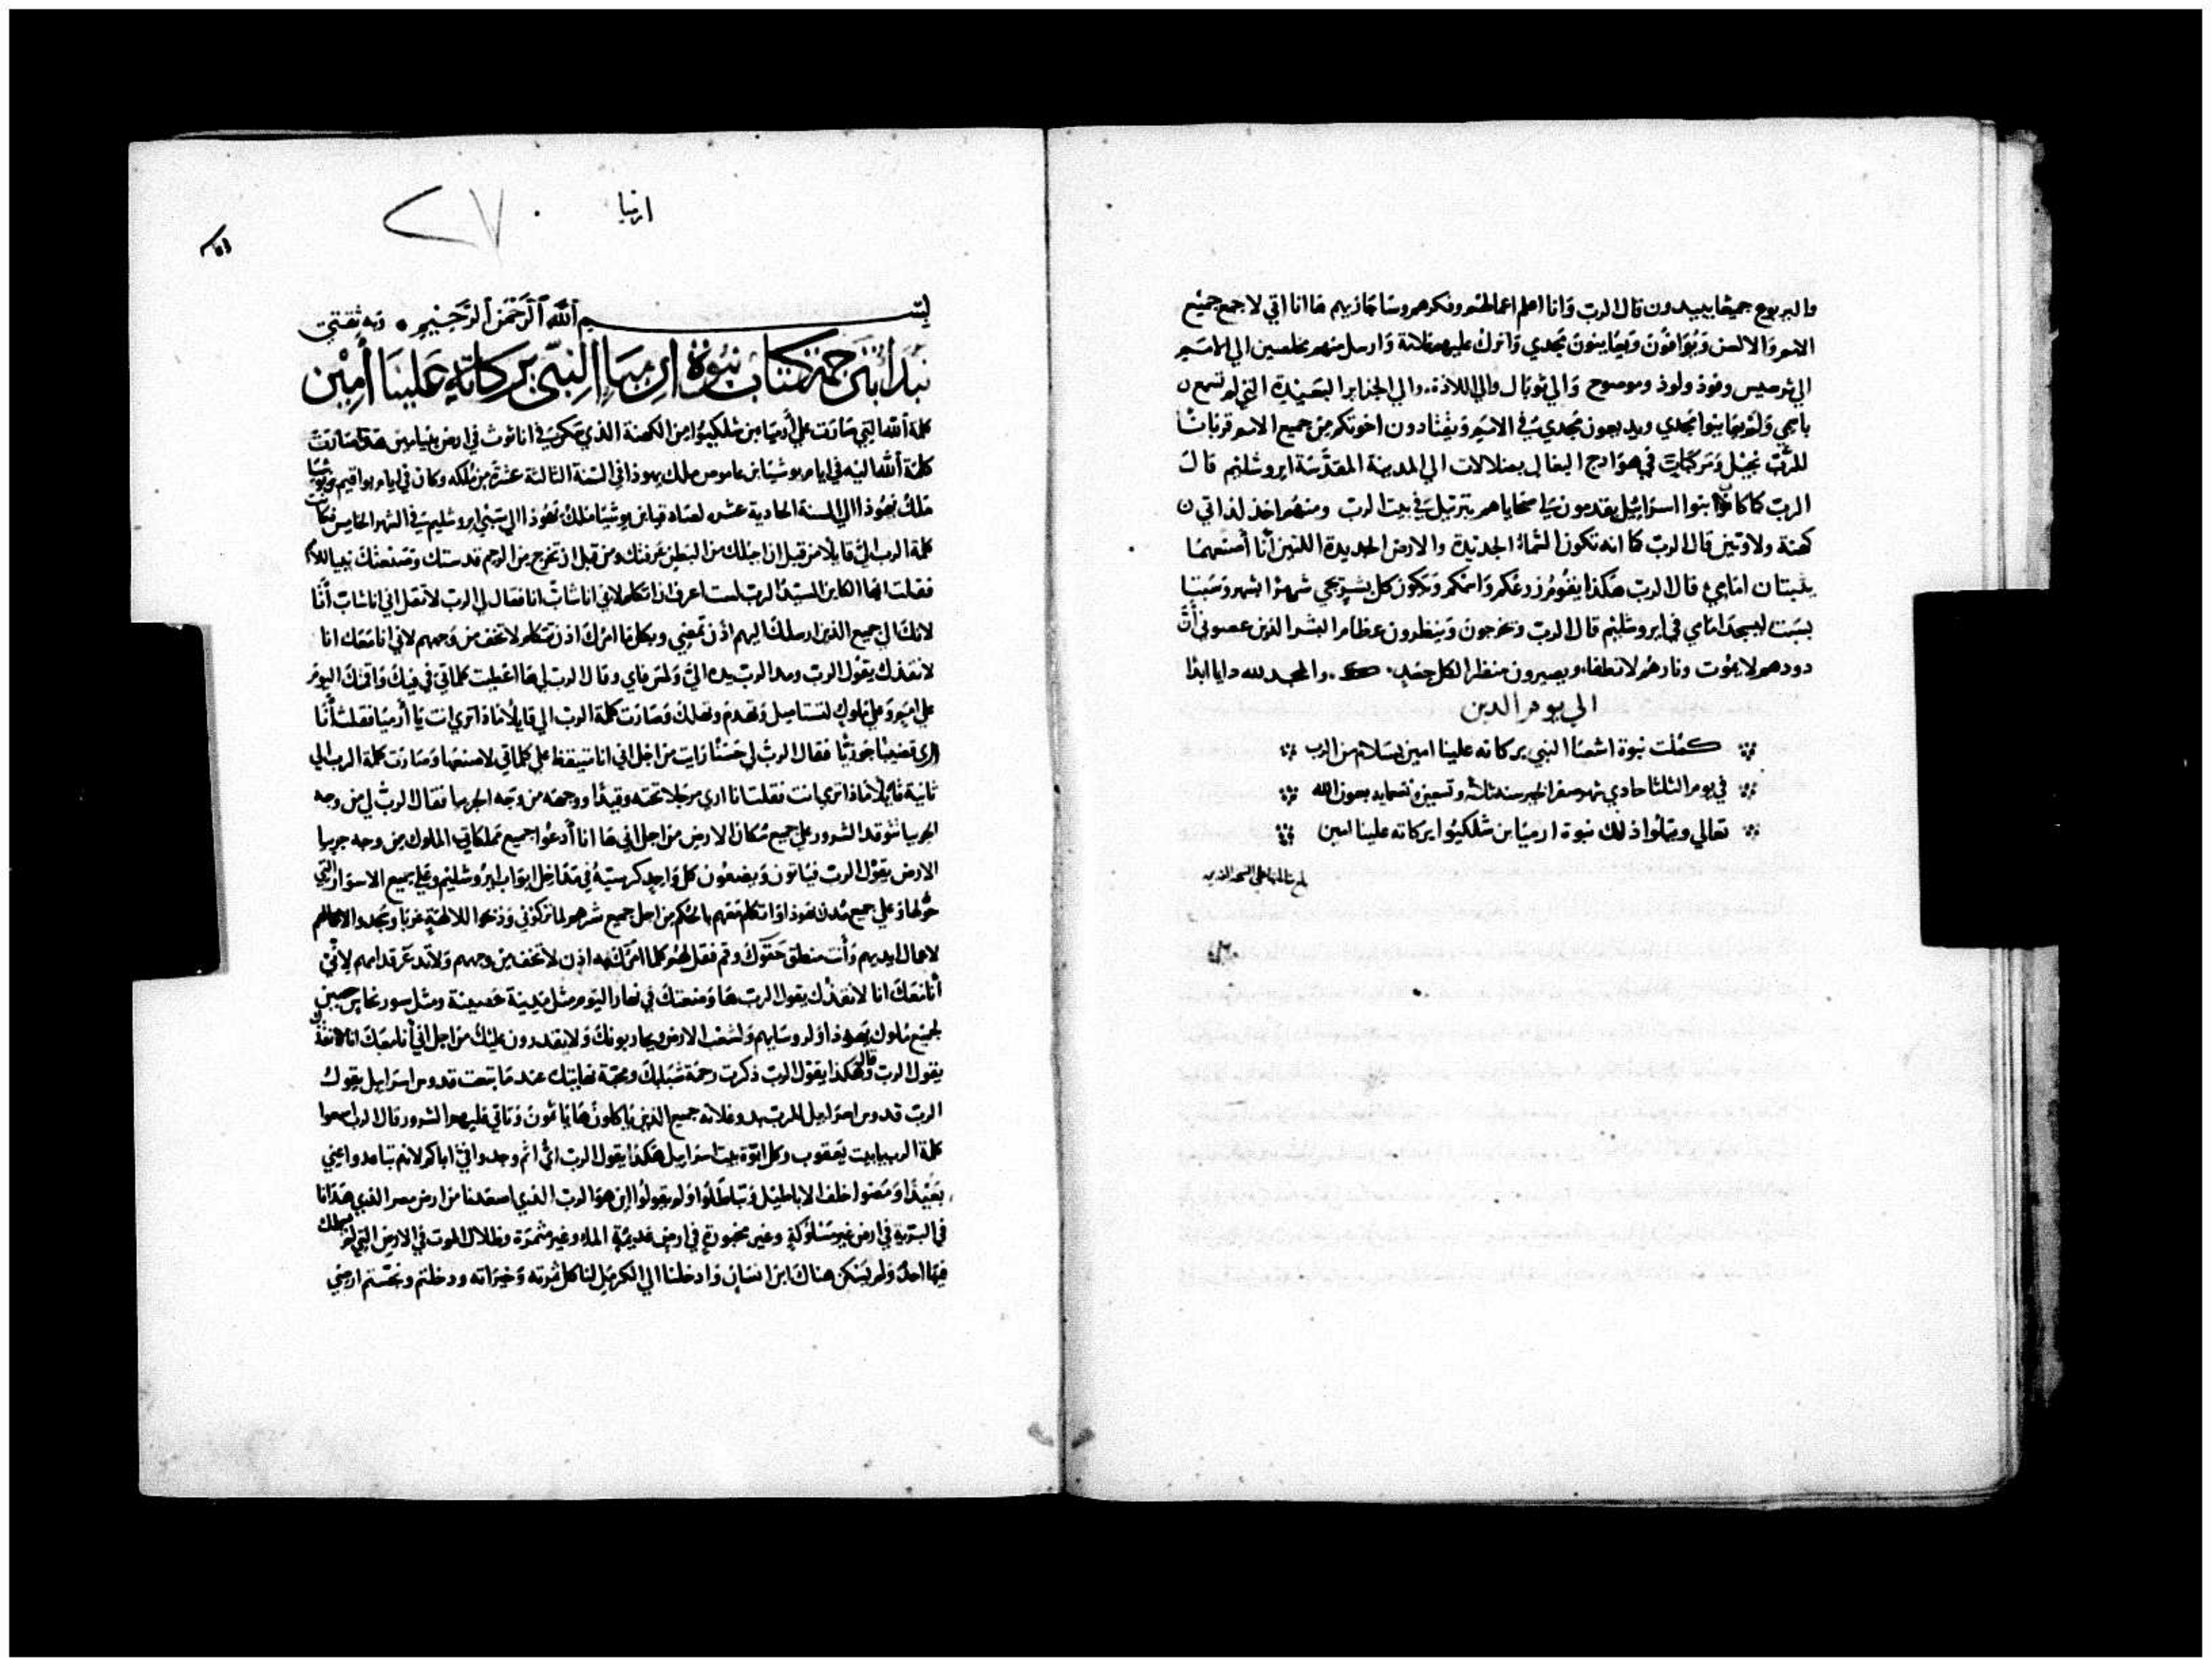 واليربوع جميعًا يبيدون قال الرب وَانا اعلم اعمالهم وفكرهم وساجازيهم هَا انا اتي لاجمع جميع
الامم وَالالسن وَيُوَافُونَ وَيعَاينونَ مجدي وَاترك عليهم علامة وَارسل منهم مخلصين الي الامم
الي ترسيس وفوذ ولوذ وموسوح وَالي ثوبال والي اللاذة والي الجزاير البَعيدة التي لم تسمع
باسمي وَلم يعَاينوا مجدي ويذيعون مجدي في الامم وَيقتادون اخوتكم من جميع الامم قربانًا
للرّب بخيل وَمركبَات في هوَادج البغال بمظلات الي المدينة المقدَّسَة ايروشليم قال
الرب كما كانوا بنوا اسرَائيل يقدمون لي ضحاياهم بترتيل في بيت الرب ومنهم اخذ لذاتي
كهنة ولاويين قال الرب كما انه تكون السَّماء الجديدة والارض الجديدة اللتين أنا أصنعهما
يثبتان امَامي قال الرب هكذا يقُومُ زرعكم وَاسمكم وَيكون كل بشر يجي شهرًا بشهر وسَبتا
بسَبت ليسجد امَامي في ايروشليم قال الرب ويخرجون وَينظرون عظام البشر الذين عصوني لأنَّ
دودهم لا يموت ونارهم لا تطفا، ويصيرون منظر الكل جسَد. والمجد لله دايما ابدًا
الي يوم الدين
كملت نبوة اشعيَا النبي بركاته علينا امين بسَلام من الرب
في يوم الثلثا حادي شهر صفر الخير سنة ثلثه وتسعين وتسعمايه بعون الله
تعالي ويتلوا ذلك نبوة ارميَا بن شلكيُوا بركاته علينا امين
ارميا
٢٧
بســـم ٱللَّه ٱلرَّحْمَن ٱلرَّحِيم وَبه ثقتي
نبدا بترجمة كتاب نبُوة ارميا النبي بركاته عَلينَا أمِيْن
كلمة اللّه التي صَارَت علي أرميَا بن شلكيوا من الكهنة الذي يسكن في اناثوث في ارض بنيامين هَذا صَارَت
كلمَة اللّه اليه في ايام يوشيَا بن عاموص ملك يهوذا في السَّنة الثالثة عشرة من مُلكه وكان في ايام يواقيم بن يوشيا
ملك يهُوذا الي السنة الحادية عشر لصَادقيا بن يوشيا ملك يهُوذا الي سَبي ايروشليم في الشهر الخامس فكانت
كلمة الرب اليَّ قايلًا من قبل ان اجبلك من البَطن عَرفتك ومن قبل ان تخرج من الرحم قدستك وَصنعتك نبيا للامم
فقلت ايها الكاين السيّد الرب لست اعرف ان اتكلم لاني انا شابّ انا فقال لي الرب لا تقل اني انا شابّ أنَا
لانك الي جميع الذين ارسلك اليهم اذن تمضي وبكل مَا امرك اذن تتكلم لا تخف من وَجههم لاني انا مَعَك انا
لانقذك يقُول الرب ومد الرب يده اليَّ وَلمسَ فاي وقال الرب لي هَا اعطيت كلماتي في فيك وَاقمتك اليَوم
علي امم وَعلي ملوك لتستاصل وَتهدم وتهلك وَصَارَت كلمة الرب الي قايلًا ماذا تري انت يَا أرميَا فقلت أنَا
اري قضيبًا جَوزيًّا فقال الربُّ لي حَسَنًا رَايت من اجل اني انا متيقظ علي كلماتي لاصنعهَا وَصَارَت كلمة الرب الي
ثانية قايلًا ماذا تري انت فقلت انا اري مرجلا تحته وقيدًا ووجهه من وَجه الجربيا فقال الربُّ لي من وجه
الجربيا تتوقد الشرور علي جميع سُكان الارض من اجل اني هَا انا أدعُوا جميع مملكات الملوك من وجه جربيا
الارض يقُول الرب فيَاتون وَيضعُون كل وَاحِد كرسيّهُ في مدَاخل ابوَاب ايروشليم وعَلي جميع الاسوَار التي
حَولها وَعلي جميع مُدن يهُوذا وَاتكلم مَعَهم بالحكم من اجل جميع شرهم لما تركوني وَذبحوا للالهَة غربَا وَسجدوا لاعمال
لاعمال ايديهم وَأنت منطق حَقوَك وقم فقل لهُم كلما امرَك به اذن لا تخف من وجههم وَلا تذعر قدامهم لأنّي
أنا مَعَك انا لانقذك يقول الرب هَا وَضعتك في نهار اليَوم مثل مَدينة حَصينة ومثل سور نحاس حصين
لجميع ملوك يهوذا وَلروسَايهم وَلشعب الارض ويحاربونك وَلا يقدرون عليك من اجل اني أنا معَك انا لانقذك
يقول الرب وقال هكذا يقول الرب ذكرت رحمَة شبَابك ومحبّة نهايتك عند مَا تبعت قدوس اسرَايل يقول
الرب قدوس اسرَايل للرب بدو غلاته جميع الذين يَاكلونه يَاثمونَ وَتاتي عَليهم الشرور قال الرب اسمعوا
كلمة الرب يا بيت يَعقوب وكل ابوّة بيت اسرَايل هكذا يقول الرب ائ اثم وجدوا فيَّ اباكم لانهم تبَاعدوا عني
بَعيْدًا وَمَضوا خلف الاباطيل فتباطَلوا وَلم يقولُوا اين هوَ الرب الذي اصعَدنا من ارض مصر الذي هَدَانا
في البَرّيَة في ارض غير مسْلوكة وغير مخبُورة في ارض عَديمَة الماء وغير مثمرَة وظلال الموت في الارض التي لم يسلك
فيهَا احدٌ وَلم يَسكن هناك ابن انسَان وَادخلنا الي الكرمل لناكل ثمرته وَخيرَاته ودخلتم ونجَّستم ارضي